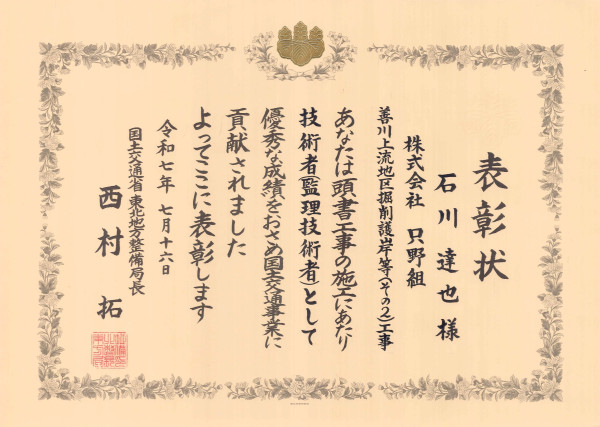 表彰状
株式会社 只野組
石川達也様
善川上流地区掘削護岸等(その2)工事
あなたは頭書工事の施工にあたり
技術者(監理技術者)として
優秀な成績をおさめ国土交通事業に
貢献されました
よってここに表彰します
令和七年 七月十六日
国土交通省 東北地方整備局長
西村 拓